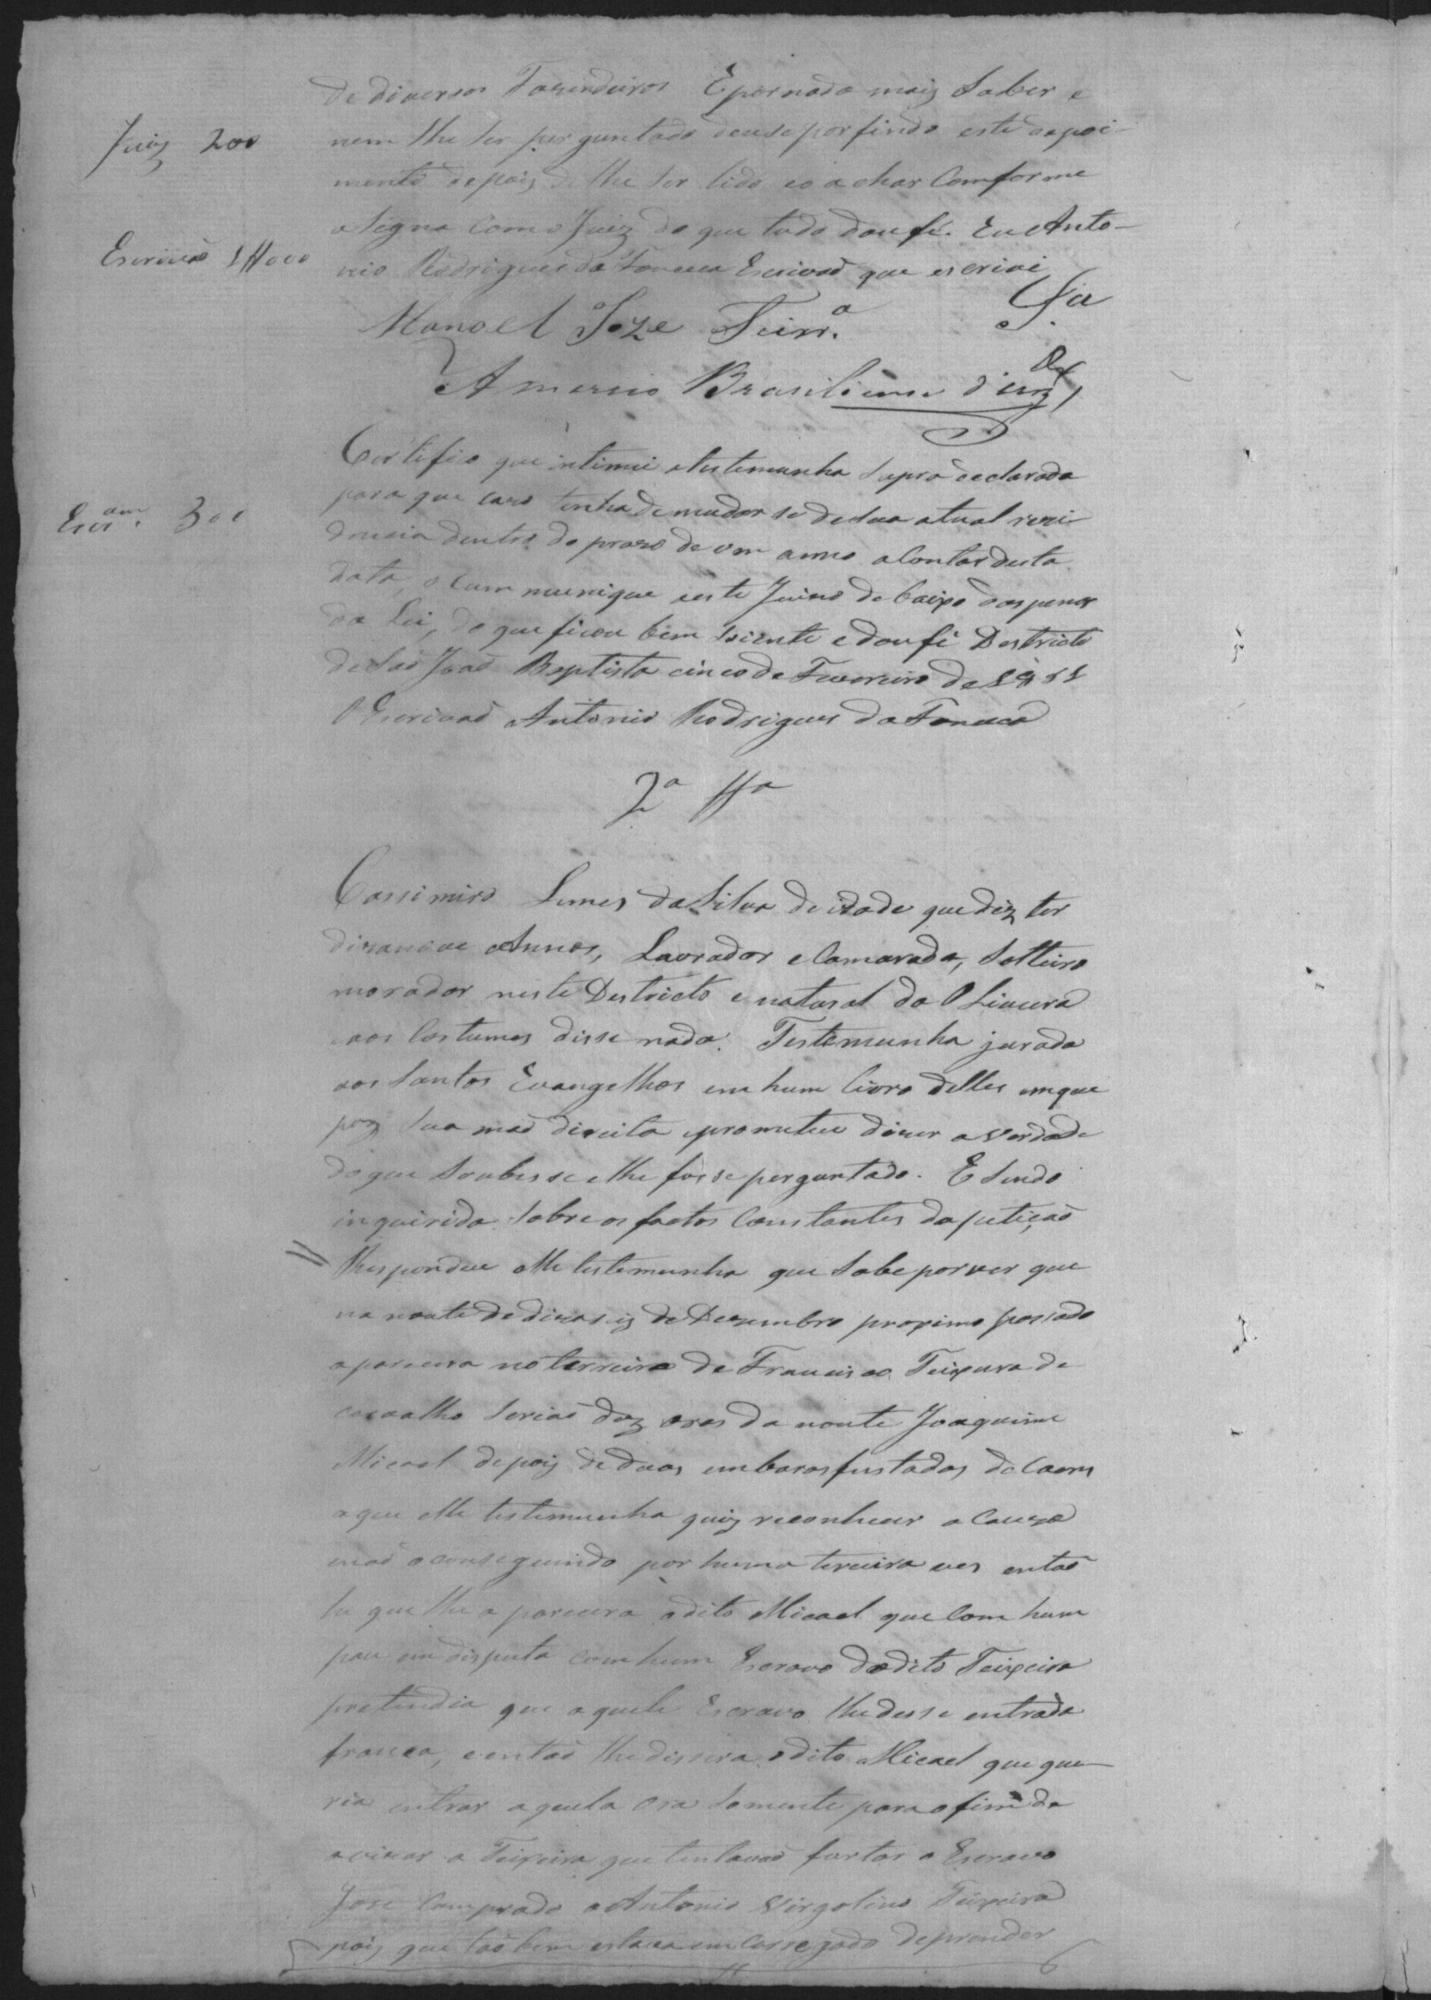 de diversos Fazendeiros E por nada mais Saber e
Juiz 200
nem lhe ser perguntado deuse por findo este depoi-
mento depois de lhe ser lido eo achar Comforme
asigna com o Juiz do que tudo dou fé. Eu Anto-
Escrivaõ 1#000
nio Rodrigues da Fonseca Escrivaõ que escrivi
Manoel Joze Ferr.ª
Americo Brasiliense
Certifico que intimei atestemunha Supra declarada
Escr.am 300
para que caso tenha de mudar se de sua atual rezi-
dencia dentro do prazo de um anno a Contar desta
data, o Communique a este Juizo de baixo das penas
da Lei, do que ficou bem sciente e dou fé Destricto
de Saõ Joaõ Baptista cinco de Fevereiro de
O Escrivaõ Antonio Rodrigues da Fonseca
2ª Ttª
Cassimiro Lemes da Silva de idade que diz ter
dizanove Annos, Lavrador e Camarada, Solteiro
morador neste Destricto e natural da Oliveira
aos Costumes disse nada. Testemunha jurada
aos Santos Evangelhos em hum livro delles em que
poz sua maõ direita e prometeu dizer a verdade
do que Soubesse e lhe fosse perguntado. E sendo
inquirida Sobre os factos Constantes da petiçaõ
Respondeu elle testemunha que Sabe por ver que
na noute de dizaseis de Dezembro proximo passado
aparecera no terreiro de Francisco Teixeira de
Carvalho Seriaõ dez oras da noute Joaquim
Micael depois de duas embarafustadas de Caens
a que elle testemunha quiz reconhecer a Cauza
naõ o conseguindo por huma terceira ves entaõ
he que lhe aparecera o dito Micael que com hum
pau em disputa com hum Escravo do dito Teixeira
pretendia que aquele Escravo lhe desse entrada
franca, e entaõ lhe dissera o dito Micael que que-
ria entrar aquela ora Somente para o fim de
avizar a Teixeira que tentavaõ furtar o Escravo
Jose Comprado a Antonio Virgolino Teixeira
pois que taõbem estava emCarregado de prender